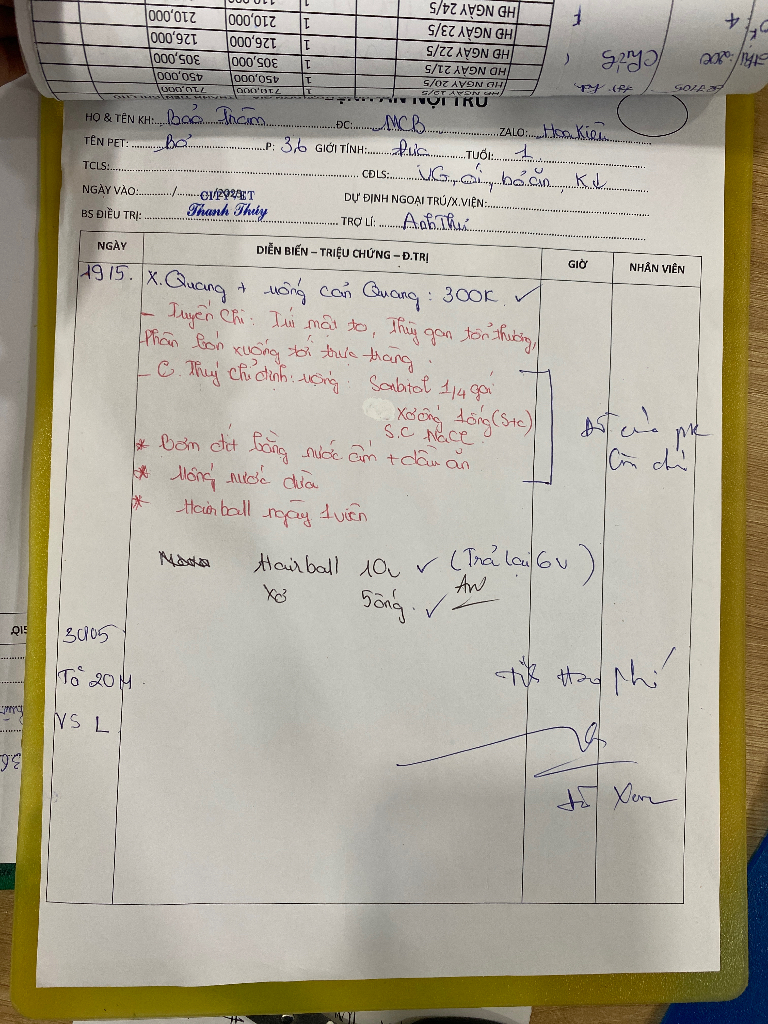 HĐ NGÀY 24/5
210,000 210,000 1 HĐ NGÀY 23/5
126,000 126,000 1 HĐ NGÀY 22/5
305,000 305,000 1 HĐ NGÀY 21/5
450,000 450,000 1 HĐ NGÀY 20/5
710,000 710,000 1 HĐ NGÀY 19/5
NỘI TRÚ
HỌ & TÊN KH: Bảo Trâm ĐC: MCB ZALO: Hoa Kiên
TÊN PET: Bơ P: 3,6 GIỚI TÍNH: Đực TUỔI: 1
TCLS: CĐLS: VG, ói, bỏ ăn, K↓
NGÀY VÀO: / /2025 DỰ ĐỊNH NGOẠI TRÚ/X.VIỆN:
BS ĐIỀU TRỊ: Thanh Thúy TRỢ LÍ: Anh Thư
NGÀY DIỄN BIẾN – TRIỆU CHỨNG – Đ.TRỊ GIỜ NHÂN VIÊN
19/5. X.Quang + uống cản Quang: 300K ✓
- Tuyến Chi: Túi mật to, Thùy gan tổn thương,
phân bón xuống tới trực tràng.
- C. Thuý chỉ định: uống: Sorbitol 1/4 gói
Xơ ống 1 ống (S+C)
S.C NaCl
* Bơm đít bằng nước ấm + dầu ăn
* Uống nước dừa
* Hairball ngày 1 viên
Hairball 10v ✓ (Trả lại 6v)
Xơ 5 ống. ✓
30/05
VS L